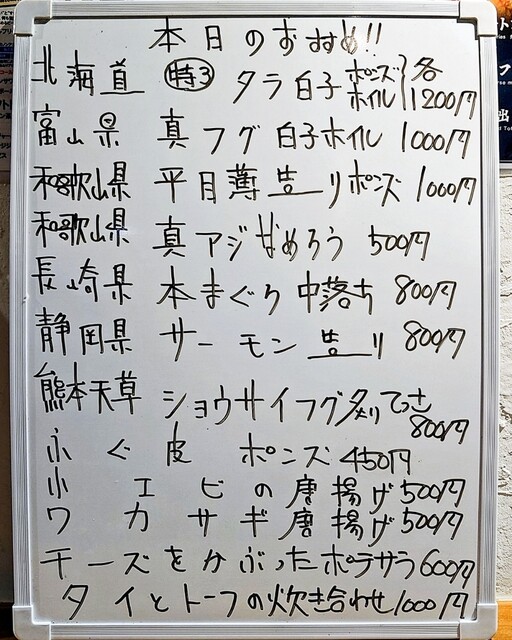 本日のおすすめ!!
北海道 特3 タラ白子 ポンズ ホイル 各1200円
富山県 真フグ白子ホイル 1000円
和歌山県 平目薄造リポンズ 1000円
和歌山県 真アジなめろう 500円
長崎県 本まぐろ中落ち 800円
静岡県 サーモン造リ 800円
熊本天草 ショウサイフグ炙りてっさ 800円
ふぐ皮 ポンズ 450円
小エビの唐揚げ 500円
ワカサギ唐揚げ 500円
チーズをかぶったポテサラ 600円
タイとトーフの炊き合わせ 1000円